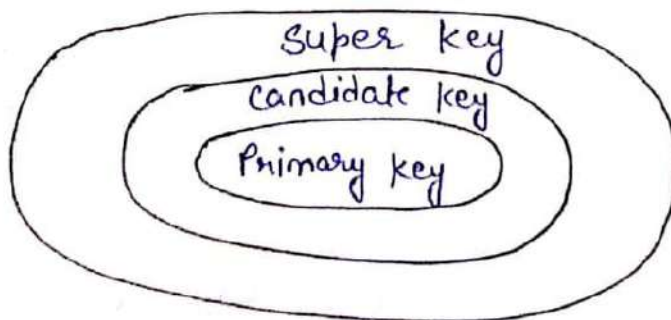 Super key
Candidate key
Primary key